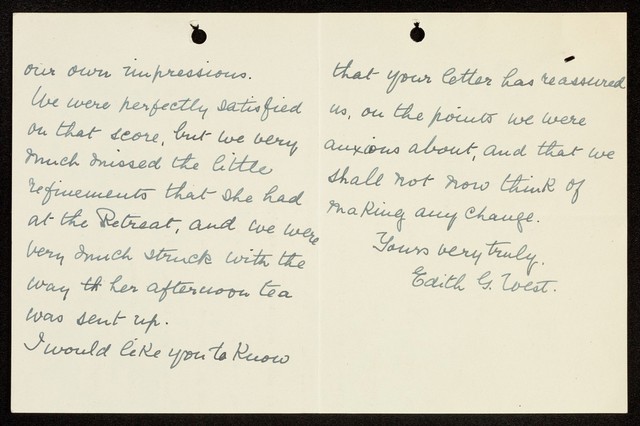 our own impressions.
We were perfectly satisfied
on that score, but we very
much missed the little
refinements that she had
at the Retreat, and we were
very much struck with the
way th her afternoon tea
was sent up.
I would like you to know
that your letter has reassured
us, on the points we were
anxious about, and that we
shall not now think of
making any change.
Yours very truly.
Edith G. West.